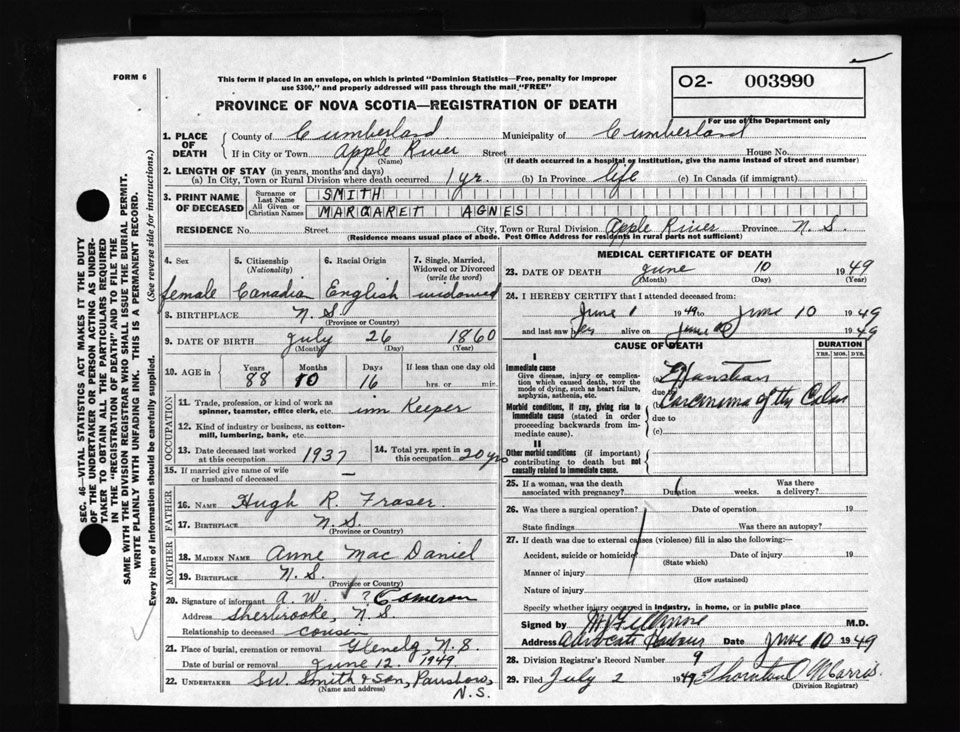 FORM 6
This form if placed in an envelope, on which is printed "Dominion Statistics—Free, penalty for improper
use $300," and properly addressed will pass through the mail "FREE"
PROVINCE OF NOVA SCOTIA—REGISTRATION OF DEATH
O2- 003990
For use of the Department only
1. PLACE OF DEATH County of Cumberland Municipality of Cumberland
If in City or Town Apple River Street House No.
(Name) (If death occurred in a hospital or institution, give the name instead of street and number)
2. LENGTH OF STAY (in years, months and days)
(a) In City, Town or Rural Division where death occurred 1 yr. (b) In Province life (c) In Canada (if immigrant)
3. PRINT NAME OF DECEASED Surname or Last Name SMITH
All Given or Christian Names MARGARET AGNES
RESIDENCE No. Street City, Town or Rural Division Apple River Province N. S.
(Residence means usual place of abode. Post Office Address for residents in rural parts not sufficient)
4. Sex 5. Citizenship (Nationality) 6. Racial Origin 7. Single, Married, Widowed or Divorced (write the word)
female Canadian English widowed
8. BIRTHPLACE N. S.
(Province or Country)
9. DATE OF BIRTH July 26 1860
(Month) (Day) (Year)
10. AGE in Years Months Days If less than one day old
88 10 16 hrs. or min.
OCCUPATION
11. Trade, profession, or kind of work as
spinner, teamster, office clerk, etc. inn Keeper
12. Kind of industry or business, as cotton-
mill, lumbering, bank, etc.
13. Date deceased last worked at this occupation 1937 14. Total yrs. spent in this occupation 20 yrs
15. If married give name of wife
or husband of deceased —
FATHER
16. NAME Hugh R. Fraser
17. BIRTHPLACE N. S.
(Province or Country)
MOTHER
18. MAIDEN NAME Anne Mac Daniel
19. BIRTHPLACE N. S.
(Province or Country)
20. Signature of informant A. W. ? Cameron
Address Sherbrooke, N. S.
Relationship to deceased cousin
21. Place of burial, cremation or removal Glenelg, N. S.
Date of burial or removal June 12. 1949.
22. UNDERTAKER Smith & Son, Parrsboro,
(Name and address) N. S.
MEDICAL CERTIFICATE OF DEATH
23. DATE OF DEATH June 10 1949
(Month) (Day) (Year)
24. I HEREBY CERTIFY that I attended deceased from:
June 1 1949 to June 10 1949
and last saw her alive on June 1949
CAUSE OF DEATH DURATION
YRS. MOS. DYS.
I
Immediate cause
Give disease, injury or compli-
cation which caused death, NOT the
mode of dying, such as heart failure,
asphyxia, asthenia, etc.
(a) Exhaustion
due to Carcinoma of the Colon
Morbid conditions, if any, giving rise to
immediate cause (stated in order
proceeding backwards from im-
mediate cause).
due to
(c)
II
Other morbid conditions (if important)
contributing to death but not
causally related to immediate cause.
25. If a woman, was the death Was there
associated with pregnancy? Duration weeks. a delivery?
26. Was there a surgical operation? Date of operation 19
State findings Was there an autopsy?
27. If death was due to external causes (violence) fill in also the following:—
Accident, suicide or homicide Date of injury 19
(State which)
Manner of injury
(How sustained)
Nature of injury
Specify whether injury occurred in industry, in home, or in public place
Signed by M.D.
Address Advocate Harbour Date June 10 1949
28. Division Registrar's Record Number 9
29. Filed July 2 1949 Thornton
(Division Registrar)
SEC. 46—VITAL STATISTICS ACT MAKES IT THE DUTY
OF THE UNDERTAKER OR PERSON ACTING AS UNDER-
TAKER TO OBTAIN ALL THE PARTICULARS REQUIRED
IN THE "REGISTRATION OF DEATH" AND TO FILE THE
SAME WITH THE DIVISION REGISTRAR WHO SHALL ISSUE THE BURIAL PERMIT.
WRITE PLAINLY WITH UNFADING INK. THIS IS A PERMANENT RECORD.
Every item of information should be carefully supplied. (See reverse side for instructions.)